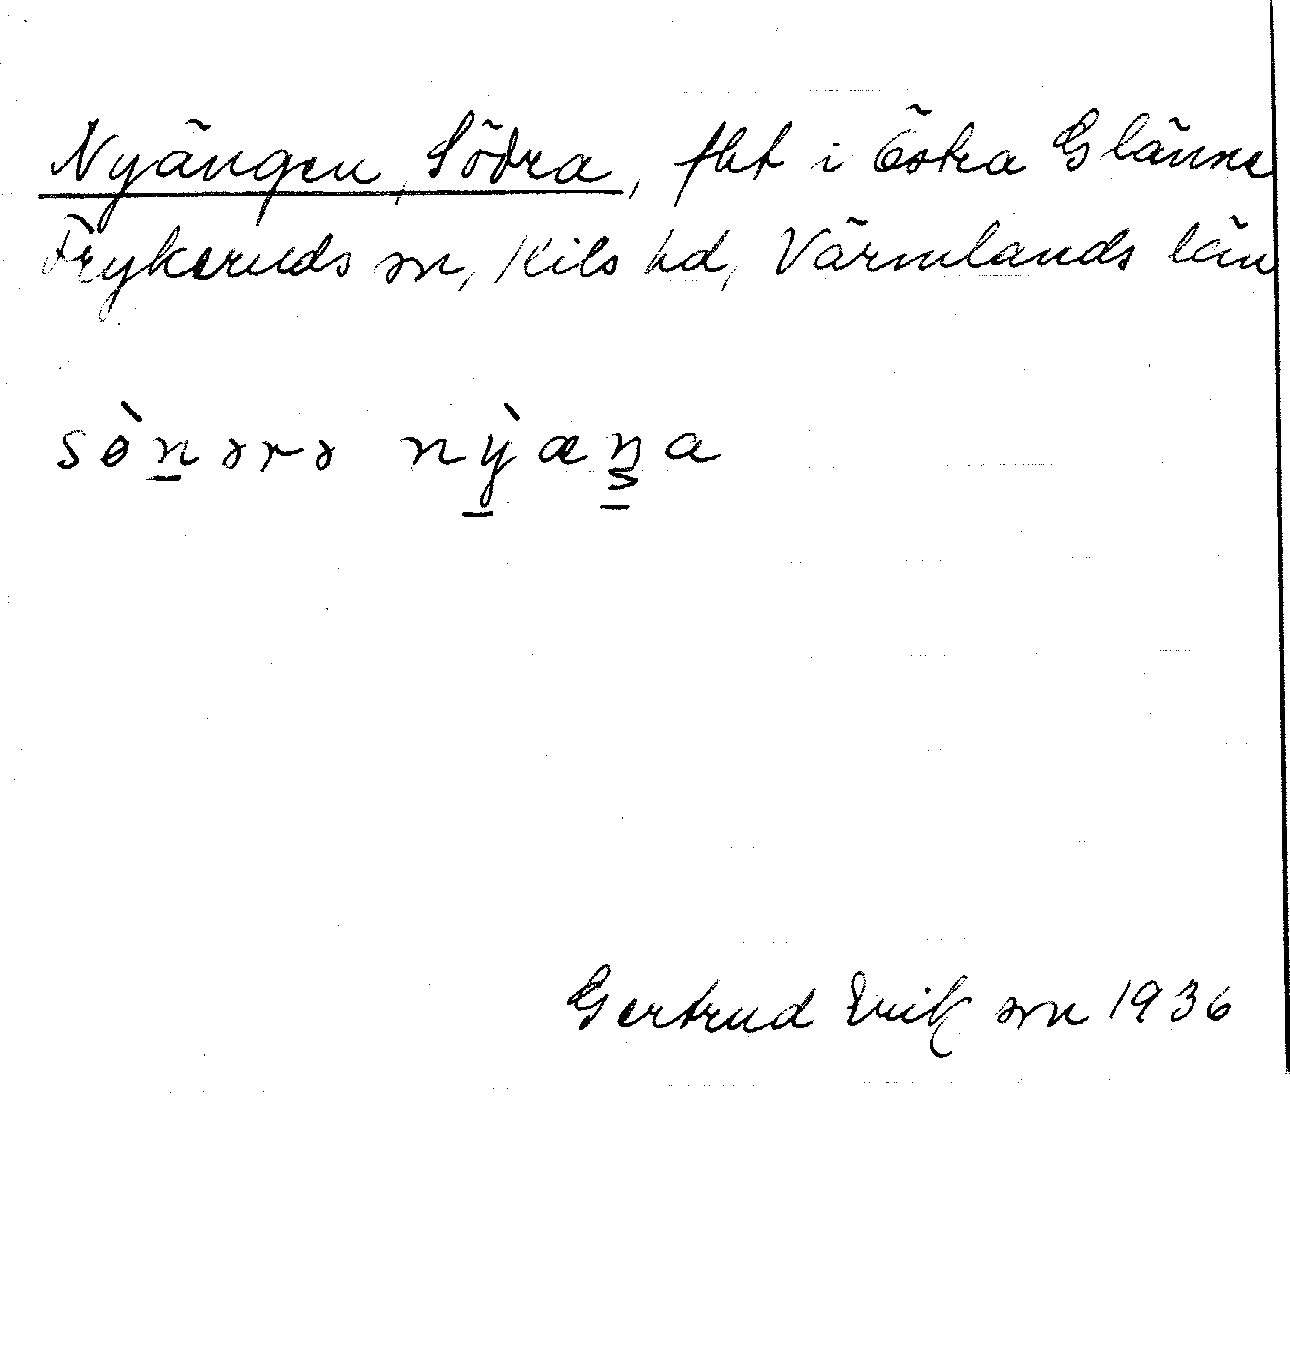 Nyängen, Södra, fht i Östra Glänne
Frykeruds sn, Kils hd, Värmlands län
sònərə nỳæŋa
Gertrud Erikson 1936